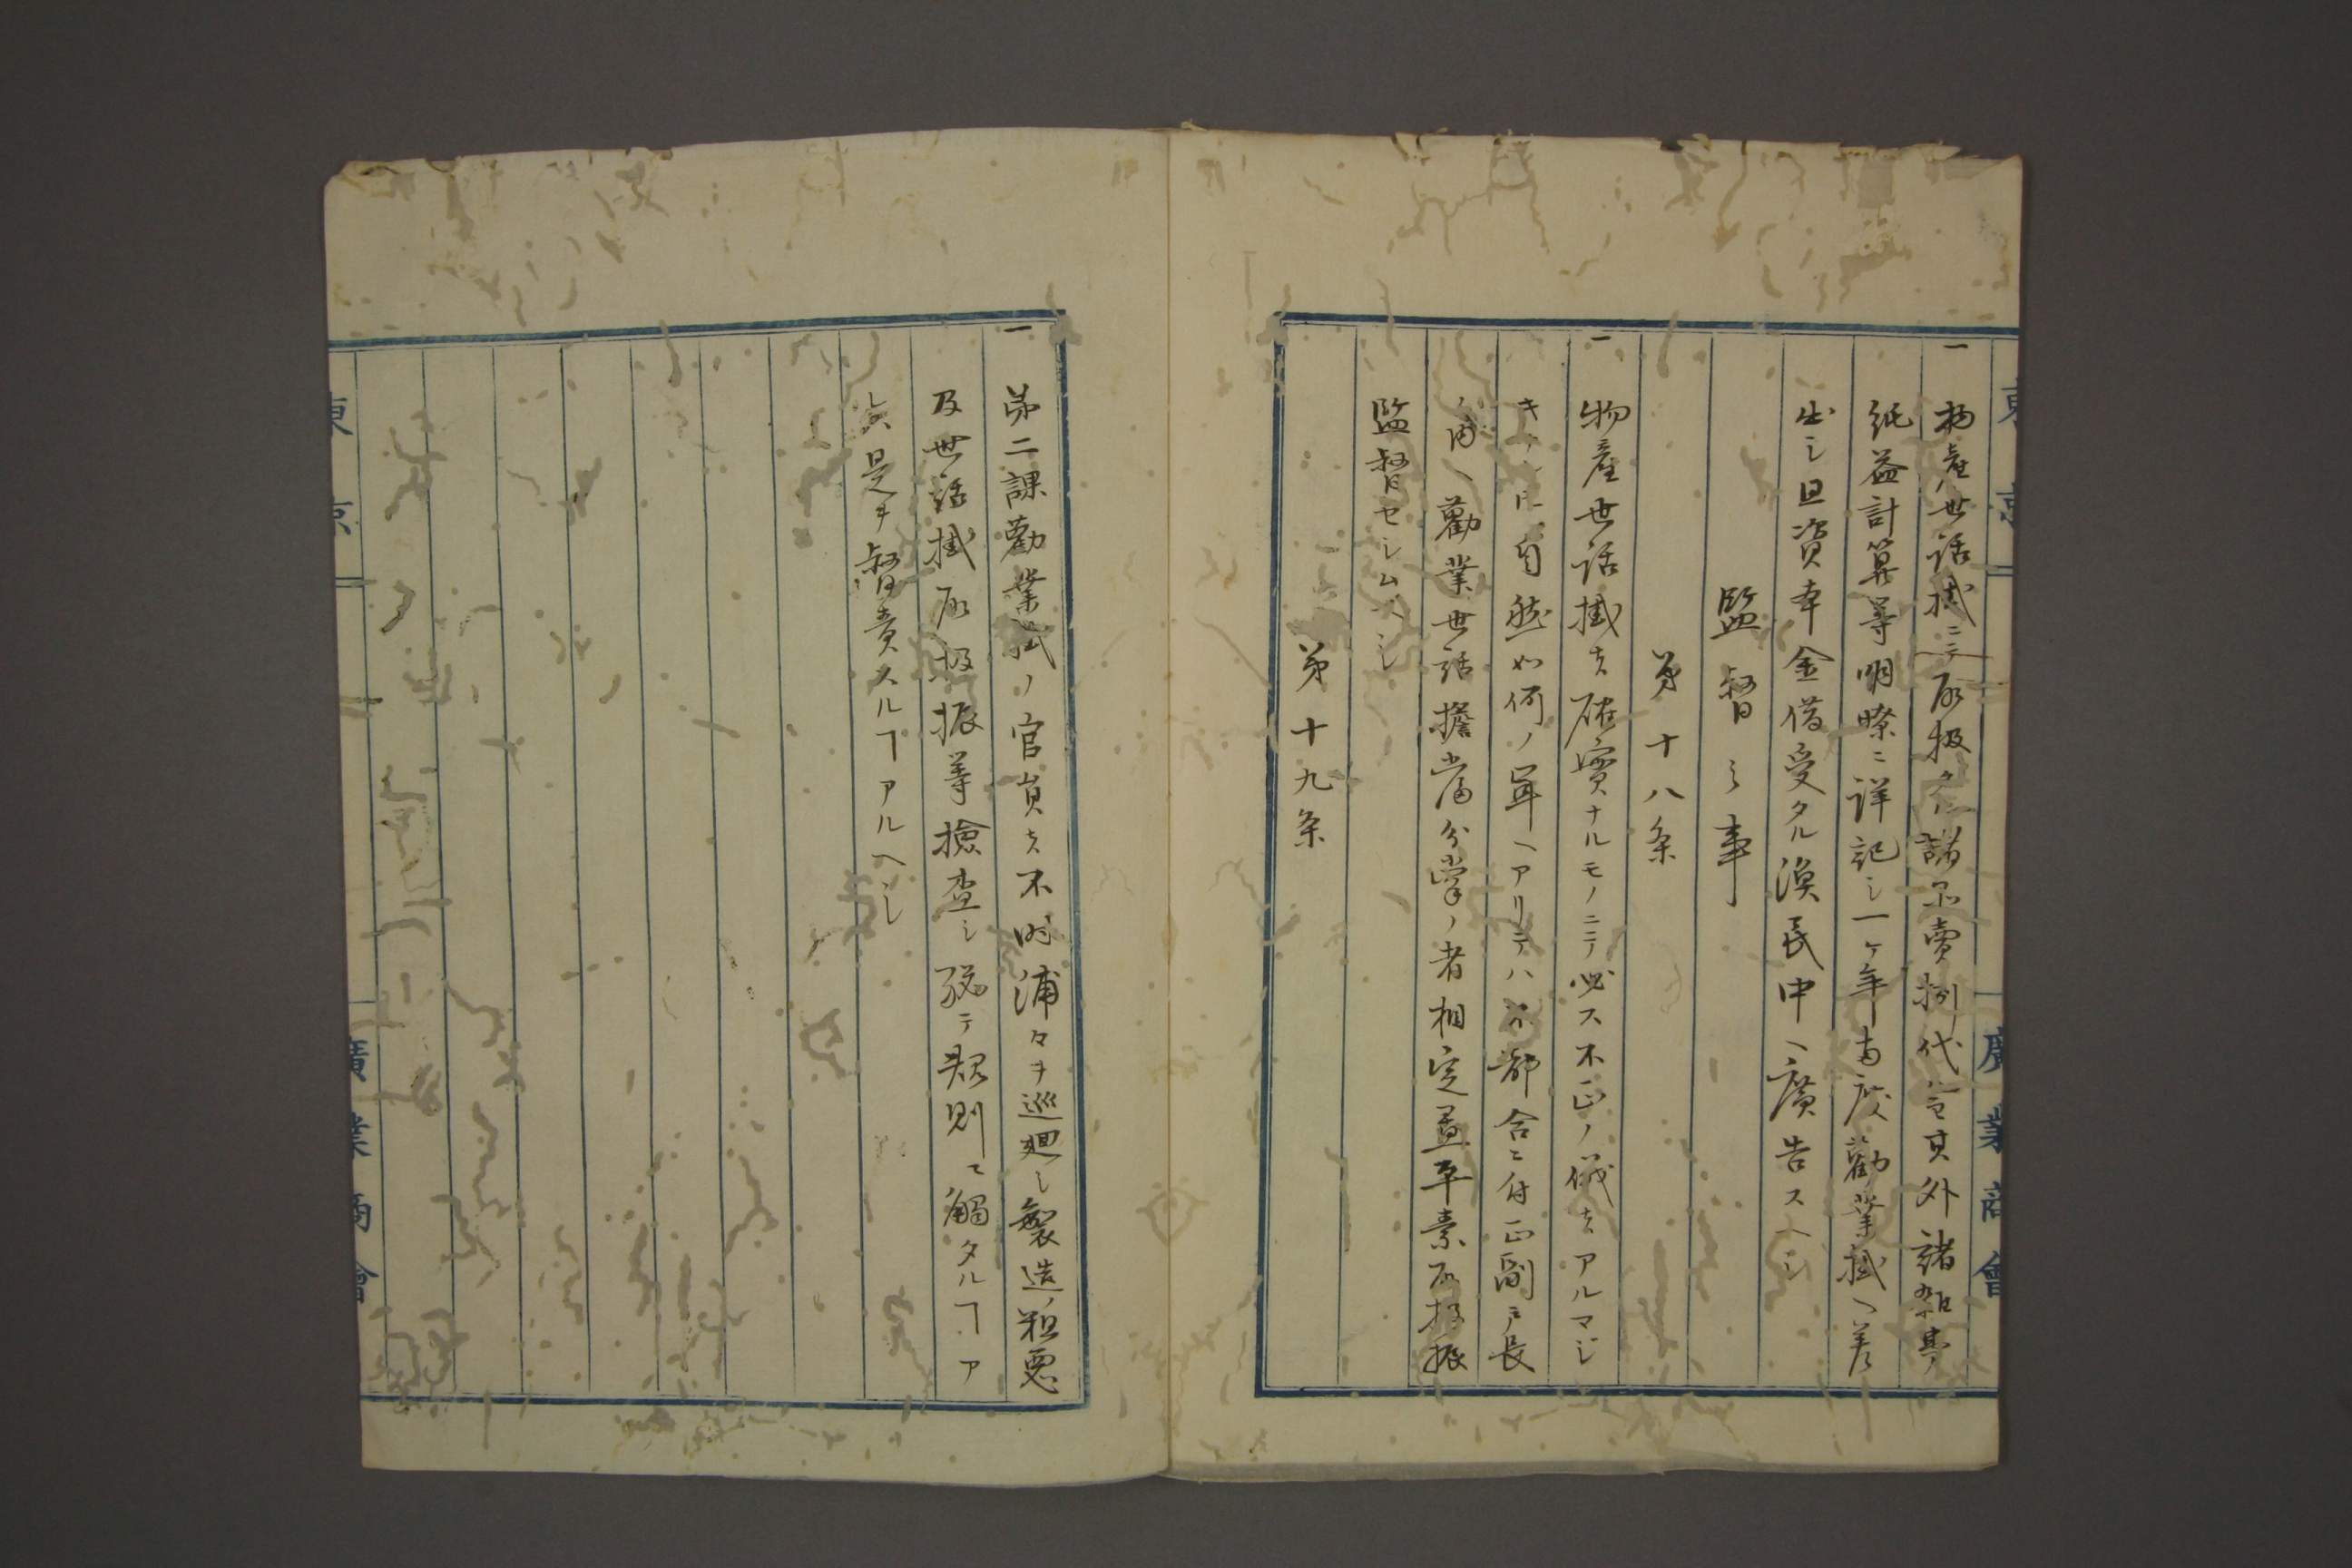 東京
廣業商會
一 物産世話掛ニテ取扱タル諸品賣捌代金其外諸雑費
純益計算等明瞭ニ詳記シ一ケ年両度勧業掛ヘ差
出シ且資本金借受タル漁民中ヘ廣告スヘシ
監督之事
第十八条
一 物産世話掛ハ確實ナルモノニテ必ス不正ノ儀ハアルマシ
キナレトモ自然如何ノ事アリテハ不都合ニ付正副戸長
ノ内ヘ勧業世話擔當分掌ノ者相定置平素取扱振
監督セシムヘシ
第十九条
一 第二課勧業掛ノ官員ハ不時浦々ヲ巡廻シ製造ノ粗悪
及世話掛取扱振等撿査シ総テ規則ニ觸タルヿア
ラハ是ヲ督責スルヿアルヘシ
東京
廣業商會